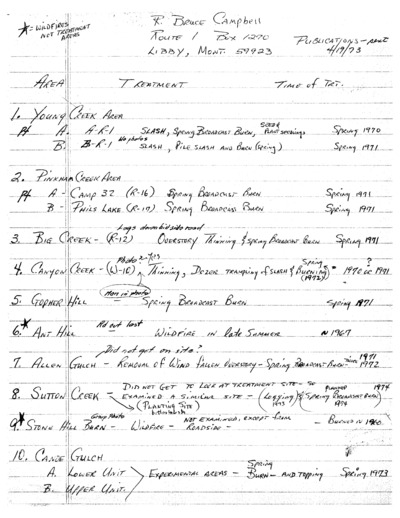 * = WILDFIRES
NOT TREATMENT
AREAS
R. BRUCE CAMPBELL
ROUTE 1 BOX 1270
LIBBY, MONT. 59923
PUBLICATIONS -
4/19/73
AREA TREATMENT TIME OF TRT.
1. YOUNG CREEK AREA
A. A-R-1 SLASH, SPRING BROADCAST BURN, SEED & PLANT seedlings Spring 1970
No photos
B. B-R-1 SLASH, PILE SLASH AND BURN (Spring) Spring 1971
2. PINKHAM CREEK AREA
A - CAMP 32 (R-16) SPRING BROADCAST BURN Spring 1971
B - PHILS LAKE (R-17) SPRING BROADCAST BURN Spring 1971
Logs down hid side road
3. BIG CREEK - (R-12) OVERSTORY THINNING & SPRING BROADCAST BURN Spring 1971
4. CANYON CREEK - (W-10) THINNING, DOZER TRAMPLING OF SLASH & Spring BURNING (1972) - ? 1970 or 1971
Man in photo
5. GOPHER HILL SPRING BROADCAST BURN Spring 1971
Rd out last
6.* ANT HILL WILDFIRE IN late SUMMER ~ 1967
Did not get on site?
7. ALLEN GULCH - REMOVAL OF WIND FALLEN OVERSTORY - SPRING BROADCAST BURN - 1971 1972
8. SUTTON CREEK - DID NOT GET TO LOOK AT TREATMENT SITE - SO
EXAMINED A SIMILAR SITE - (Logging 1973) & (PLANNED SPRING BROADCAST BURN 1974) 1974
(PLANTING SITE)
Group Photo
9.* STONE HILL BURN - WILDFIRE - NOT EXAMINED, EXCEPT FROM ROADSIDE - - BURNED IN 1960
10. CANOE GULCH
A. LOWER UNIT
B. UPPER UNIT.
EXPERIMENTAL AREAS - Spring BURN - AND TOPPING Spring 1973